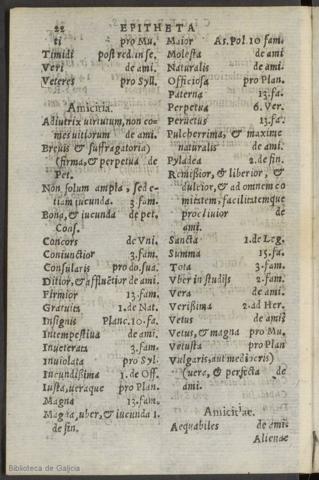 22 EPITHETA
ti pro Mu.
Timidi post red. in se.
Veri de ami.
Veteres pro Syll.
Amicitia.
Adiutrix uirtutum, non co-
mes uitiorum de ami.
Breuis & suffragatoria)
(firma, & perpetua de
Pet.
Non solum ampla, sed e-
tiam iucunda. 3. fam.
Bona, & iucunda de pet.
Cons.
Concors de Vni.
Coniunctior 3. fam.
Consularis pro do. sua.
Ditior, & affluẽtior de ami.
Firmior 13. fam.
Gratuita 1. de Nat.
Insignis Planc. 10. fa.
Intempestiua de ami.
Inueterata 3. fam.
Inuiolata pro Syl.
Iucundißima 1. de Off.
Iusta, ueraque pro Plan.
Magna 13. fam.
Magna, uber, & iucunda 1.
de fin.
Maior As. Pol. 10 fam.
Molesta de ami
Naturalis de ami.
Officiosa pro Plan.
Paterna 13. fa.
Perpetua 6. Ver.
Peruetus 13. fa.
Pulcherrima, & maxime
naturalis de ami.
Pyladea 2. de fin.
Remißior, & liberior, &
dulcior, & ad omnem co
mitatem, facilitatemque
procliuior de
ami.
Sancta 1. de Leg.
Summa 15. fa.
Tota 3. fam.
Vber in studijs 2. fam.
Vera de ami.
Verißima 2. ad Her.
Vetus de ami
Vetus, & magna pro Mu.
Vetusta pro Plan
Vulgaris, aut mediocris)
(uera, & perfecta de
ami.
Amicitiae.
Aequabiles de ami.
Alienae
Biblioteca de Galicia